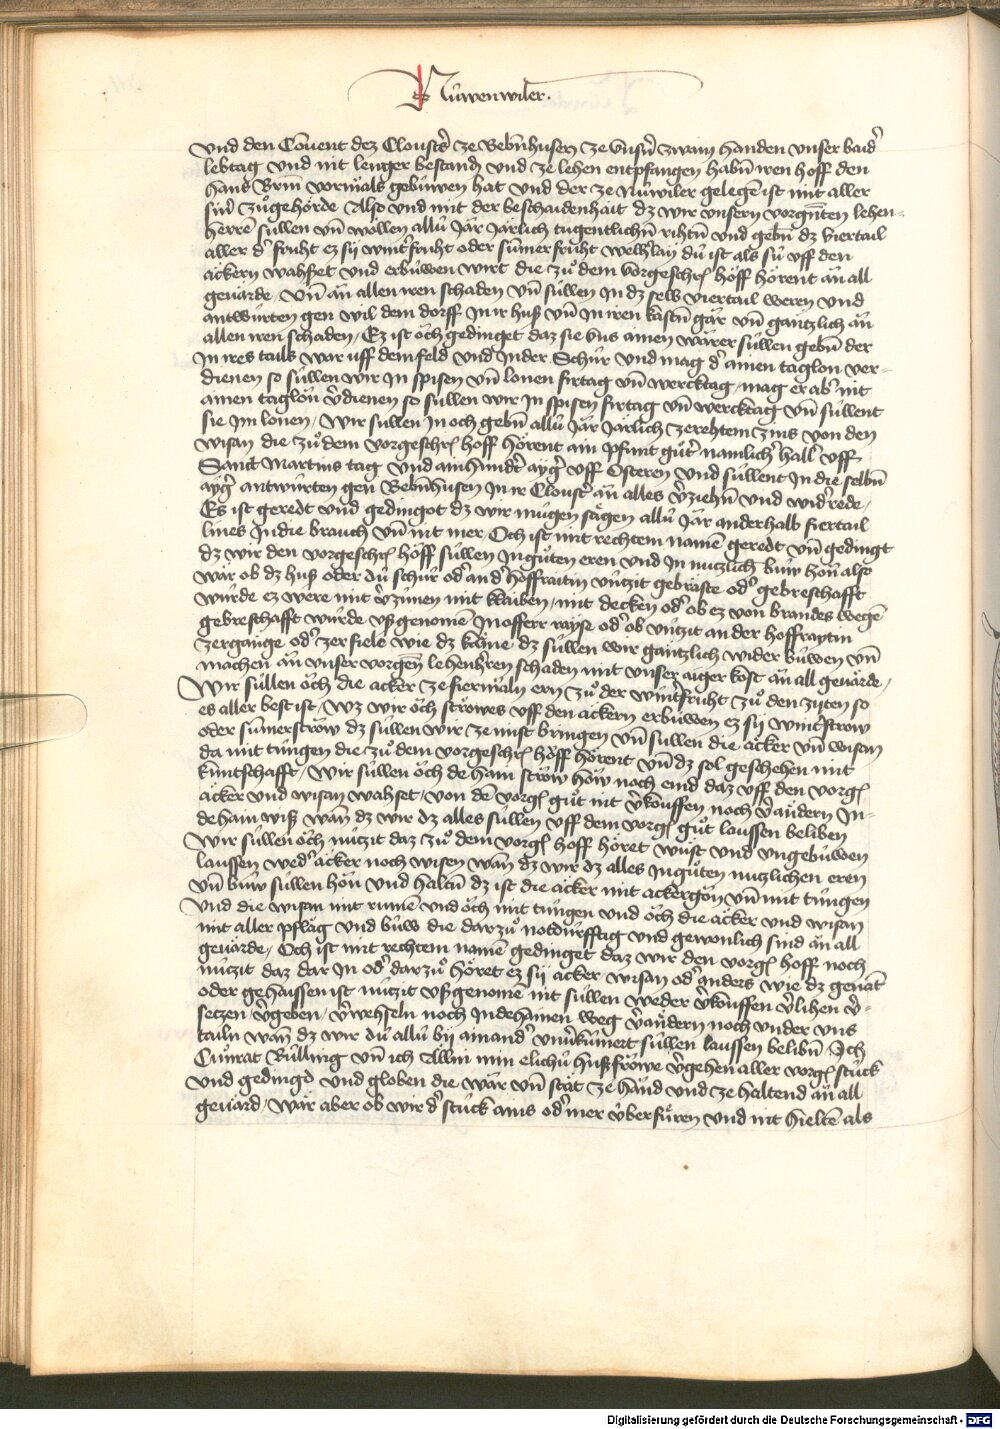 Nüwenwiler.
vnd den Couent dez Closters ze Bebenhusen ze vnsern zwain handen vnser baider
lebtag vnd nit lenger bestanden vnd ze lehen entpfangen habn iren hoff den
Hans Brin vormals gebuwen hat vnd der ze Nüwiler gelegen ist mit aller
siner zuogehörde Also vnd mit der beschaidenhait dz wir vnsern vorgnten lehen-
herren sullen vn wöllen allü Jär Järlich tugentlichn rihtn vnd gebn dz viertail
aller der fruht ez sy winterfruht oder sumerfruht welhlay dü ist als sü vff den
äckern wahset vnd erbuwen wirt die zuo dem vorgeschr hoff hörent än all
geuärde, vn än allen iren schaden vn sullen In dz selb viertail weren vnd
antwurten gen wil dem dorff In ir huß vn In iren kastn gar vn gäntzlich än
allen iren schaden, Ez ist öch gedinget daz sie vns ainen wärer sullen gebn der
In ires tails war vff dem feld vnd In der Schür vnd mag der ainen taglon ver-
dienen so sullen wir In spisen vn lonen firtag vn wercktag, mag er aber nit
ainen taglon verdienen so sullen wir In spisen firtag vn wercktag vn sullent
sie Im lonen, Wir sullen In och gebn allü Jär Järlich ze rehtem zins von den
wisan die zuo dem vorgeschr hoff hörent ain pfunt guoter namlicher haller vff
Sanct Martins tag vnd ain hundert ayger vff Osteren vnd sullent In die selbn
ayger antwurten gen Bebnhusen In ir Closter än alles verziehn vnd widerrede,
Es ist geredt vnd gedingot dz wir mugen säyen allü Jär anderhalb fiertail
lines In die brauch vn nit mer, Och ist mit rechtem namen geredt vn gedingt
dz wir den vorgeschr hoff sullen In guoten eren vnd In nutzlichem buw hon also
wär ob dz huß oder dü schür oder ander hoffraitin vntzit gebräste oder gebreschafft
wurde ez were mit verzünen mit klaiben, mit decken oder ob ez von brandes wegen
gebreschafft wurde vßgenomen In offerr rayse oder ob vntzit an der hoffraytin
zergänge oder zerfiele wie dz käme dz sullen wir gäntzlich wider buwen vn
machen än vnser vorgen lehenherren schaden mit vnser aiger kost än all geuärde,
Wir sullen öch die äcker ze fiermaln ern zuo der winterfruht zuo den zyten so
es aller best ist, wz wir öch ströwes vff den äckern erbuwen ez sy winterstrow
oder sumerströw dz sullen wir ze mist bringen vn sullen die äcker vn wisen
da mit tungen die zuo dem vorgeschr hoff hörent vn dz sol geschehen mit
kuntschafft, Wir sullen öch dehain ströw höw noch emd daz vff den vorg
äcker vnd wisan wahset, von dem vorg guot nit verkouffen noch verändern In-
dehain wiß wan dz wir dz alles sullen vff dem vorg guot laussen beliben
Wir sullen öch nützit daz zuo dem vorg hoff höret wüst vnd vngebuwen
laussen weder äcker noch wisen wan dz wir dz alles In guoten nutzlichen eren
vn buw sullen hon vnd haltn dz ist die äcker mit ackergön vn mit tungen
vnd die wisan mit rumen vnd öch mit tungen vnd öch die äcker vnd wisan
mit aller pfläg vnd buw die darzuo notdurfftig vnd gewonlich sind än all
geuärde, Och ist mit rechtem namen gedinget daz wir den vorg hoff noch
nützit daz dar In oder darzuo höret ez sy äcker wisan oder anders wie dz genant
oder gehaissen ist nützit vßgenomen nit sullen weder verkouffen verlihen ver-
setzen, vergeben, verwehseln noch In dehainen weg verändern noch vnder vns
tailn wan dz wir dü allü by ainander vnuerkümert sullen laussen belibn Ich
Cunrat Rülling vn ich Alln min elichü hußfröwe vergehen aller vorg stuck
vnd gedingd vnd globen die wär vn stät ze händ vnd ze haltend än all
geuärd, wär aber ob wir der stuck ains oder mer überfüren vnd nit hielten als
Digitalisierung gefördert durch die Deutsche Forschungsgemeinschaft - DFG